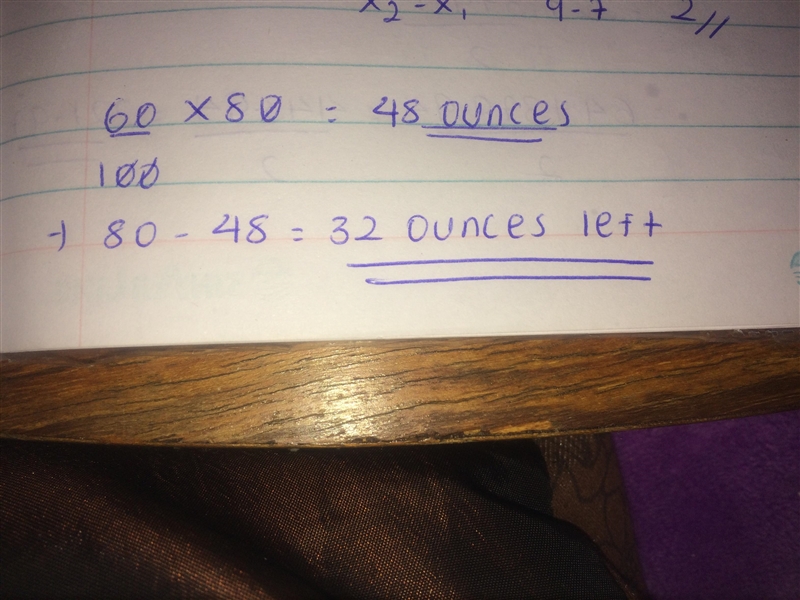 x₂-x₁ 9-7 2//
60 × 80 = 48 ounces
100
→ 80 - 48 = 32 ounces left